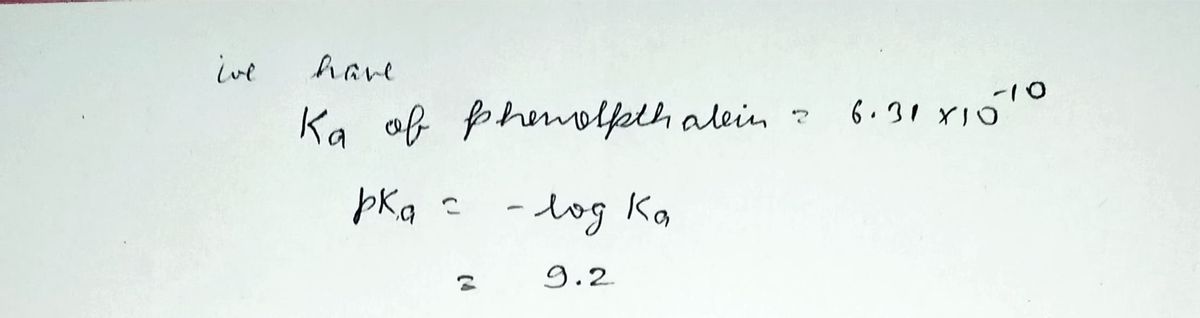 we have
Ka of phenolpthalein = 6.31 x10⁻¹⁰
pKa = - log Ka
= 9.2